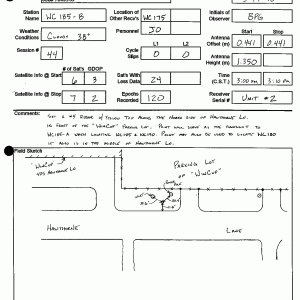 Station Name WC 185-B
Location of Other Recv's WC 175
Initials of Observer BPG
Weather Conditions Cloudy 38°
Personnel JO
Start Stop
Antenna Offset (m) 0.441 0.441
Session # 44
L1 L2
Cycle Slips 0 1
Antenna Height (m) 1.350
# of Sat's GDOP
Satellite Info @ Start 6 3
Sat's With Less Data 24
Start Stop
Time (C.S.T.) 3:00 pm 3:10 pm
Satellite Info @ Stop 7 2
Epochs Recorded 120
Receiver Serial # Unit #2
Comments: Set a #5 Rebar w/ Yellow Top along the North side of Hawthorne Ln.
in front of the "WinCup" Parking Lot. Point will serve as the
WC185-A when locating WC185 & WC180. Point can also be used to locate WC180
It also is in the middle of Hawthorne Ln.
Field Sketch
"WinCup"
Hawthorne Ln.
Parking Lot
of "WinCup"
Hawthorne Lane